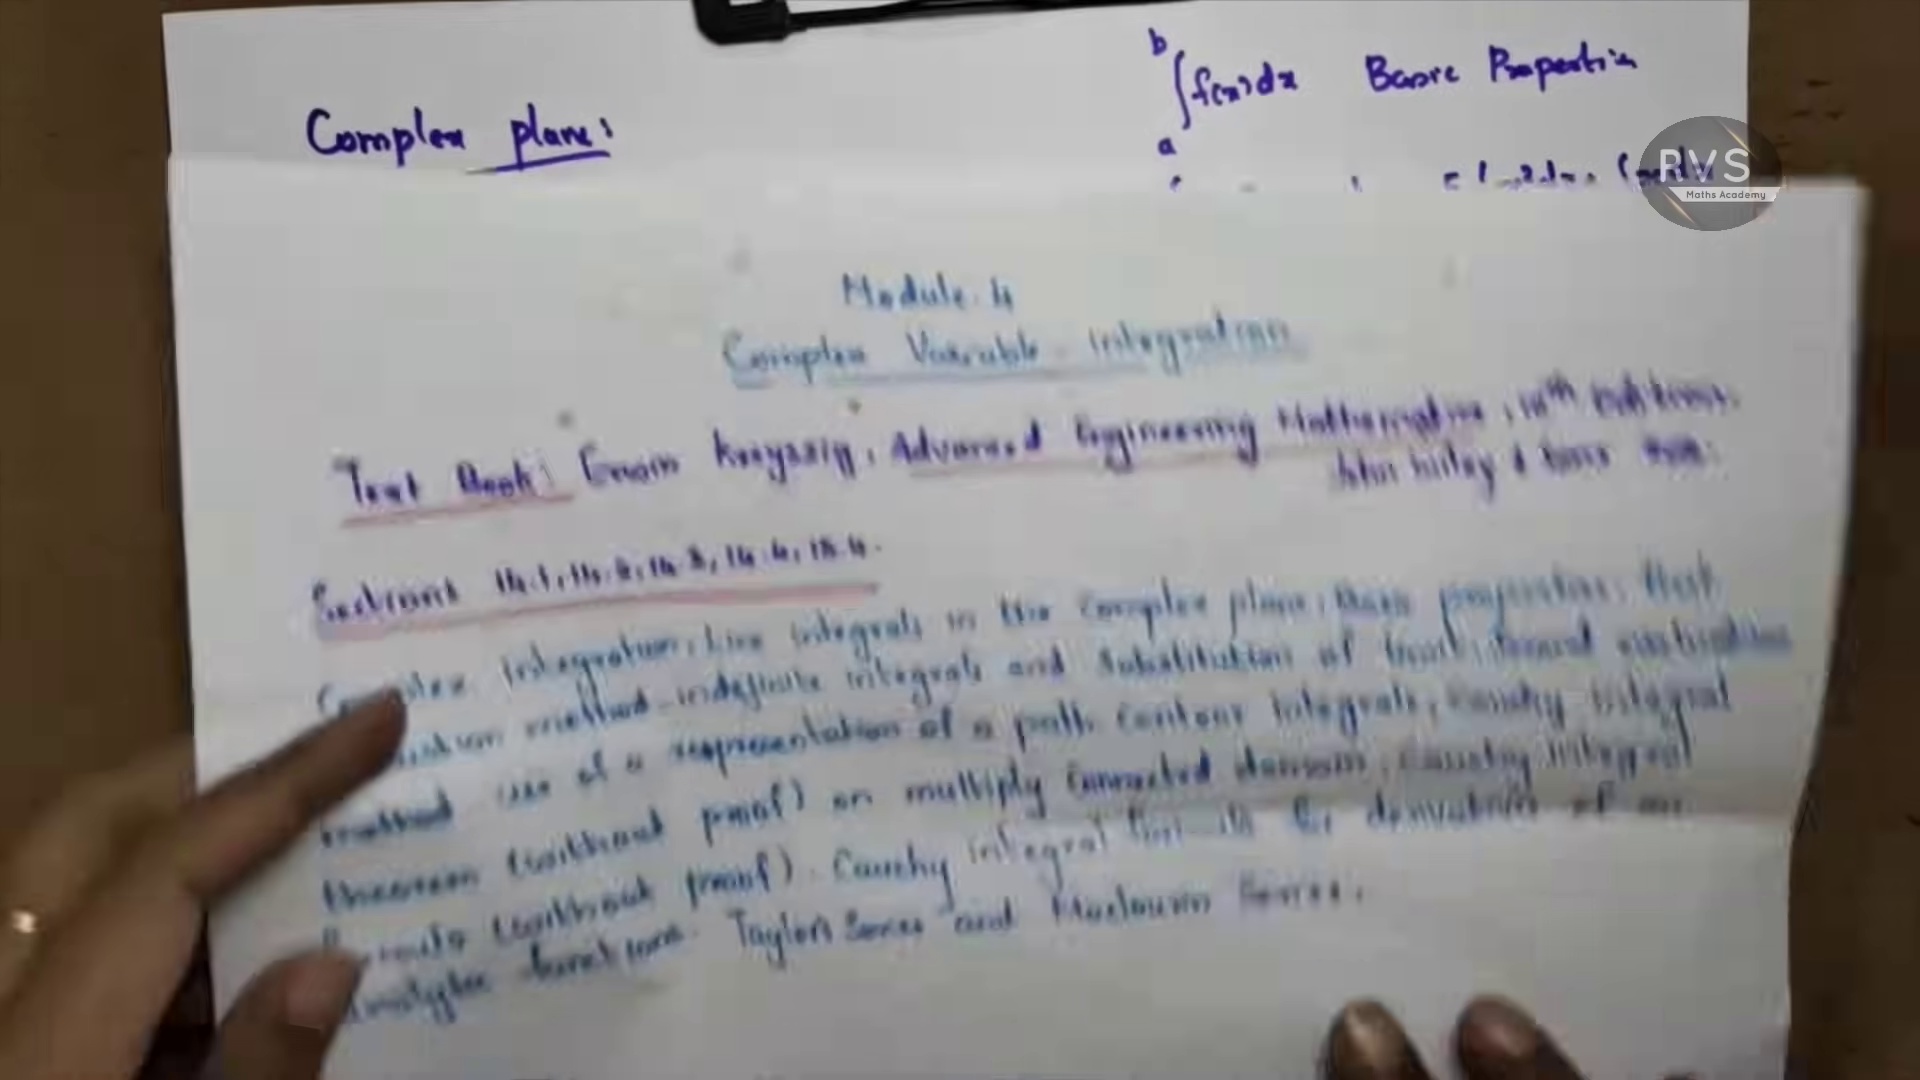 b
∫f(x)dx Basic Properties
a
Complex plane:
RVS
Maths Academy
Module 4
Complex Variable integration
Text Book: Erwin Kreyszig, Advanced Engineering Mathematics, 10th Edition,
John Wiley & Sons
Sections 14.1, 14.2, 14.3, 14.4, 15.4.
Complex integration, Line integrals in the complex plane, Basic properties, First
method-indefinite integrals and substitution of limit, second evaluation
method use of a representation of a path. Contour integrals, Cauchy integral
theorem (without proof) on multiply connected domain, Cauchy integral
(without proof). Cauchy integral for derivatives of an
analytic functions. Taylor Series and Maclaurin Series.